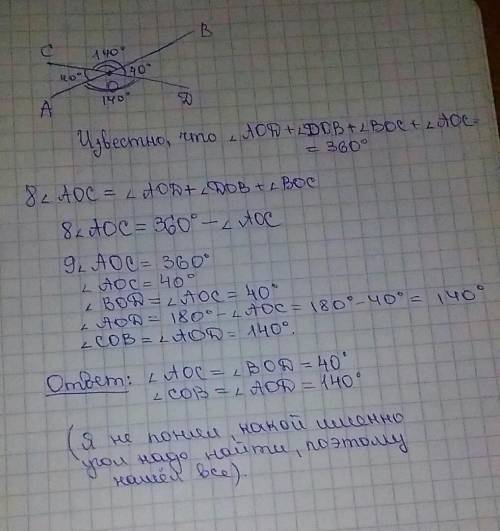 C 140° B
40° 40°
O
A 140° D
Известно, что ∠AOD+∠DOB+∠BOC+∠AOC=
=360°
8∠AOC=∠AOD+∠DOB+∠BOC
8∠AOC=360°-∠AOC
9∠AOC=360°
∠AOC=40°
∠BOD=∠AOC=40°
∠AOD=180°-∠AOC=180°-40°=140°
∠COB=∠AOD=140°.
Ответ: ∠AOC=∠BOD=40°
∠COB=∠AOD=140°
(Я не понял, какой именно
угол надо найти, поэтому
нашёл все).